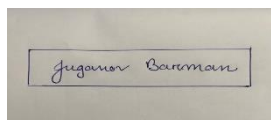 Juganov Barman